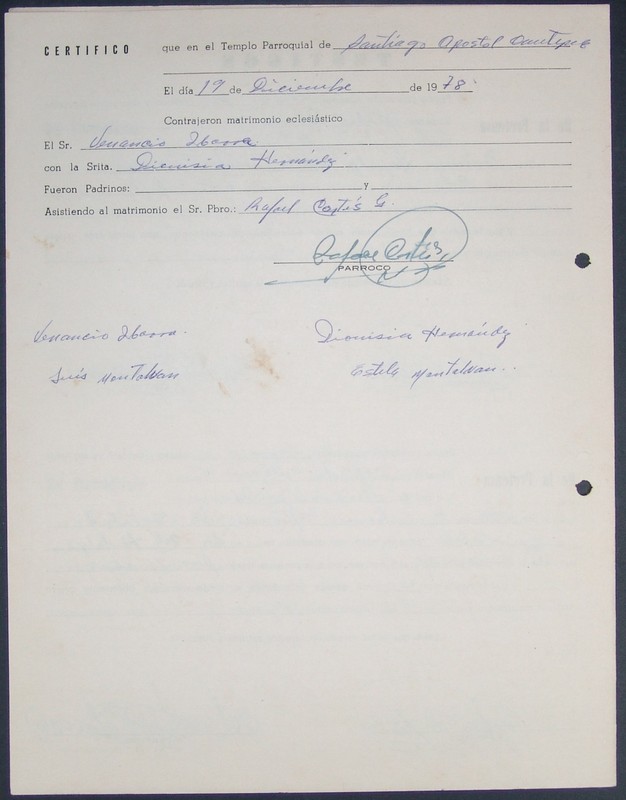 CERTIFICO que en el Templo Parroquial de Santiago Apostol
El día 19 de Diciembre de 1978.
Contrajeron matrimonio eclesiástico
El Sr. Venancio Ibarra.
con la Srita. Dionisia Hernández
Fueron Padrinos: y
Asistiendo al matrimonio el Sr. Pbro.: Rafael Cortés G.
Rafael Cortés
PARROCO
Venancio Ibarra. Dionisia Hernández
Luis Montalvan Estela Montalvan..